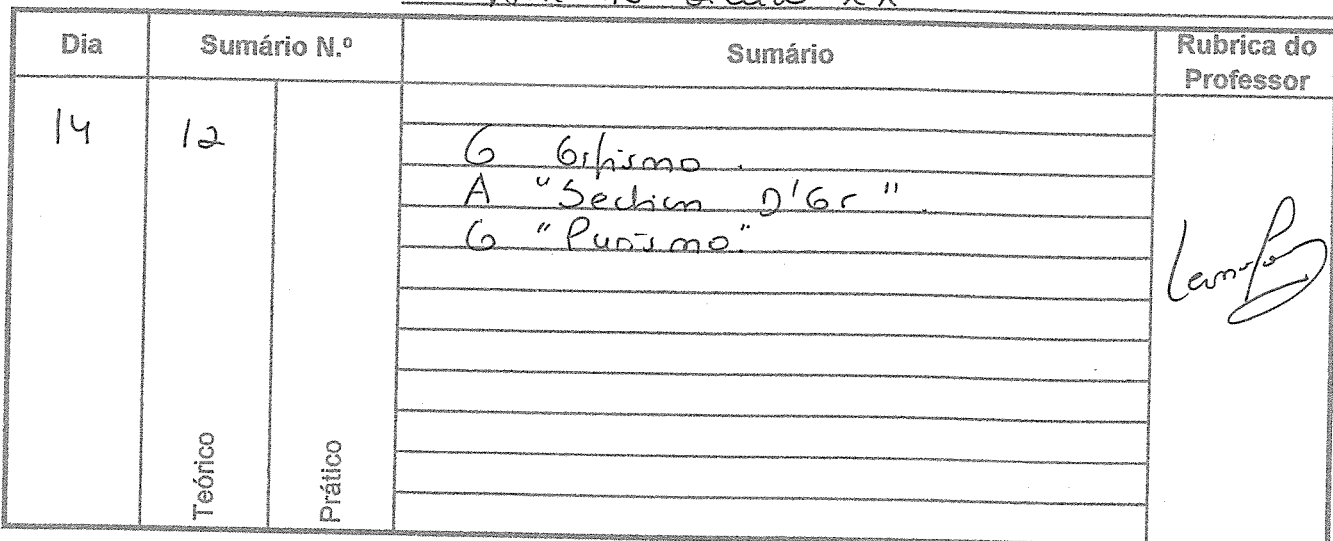 Século XX
Dia
Sumário N.º
Sumário
Rubrica do
Professor
14
12
O Orfismo.
A "Section D'Or".
O "Purismo"
Teórico
Prático